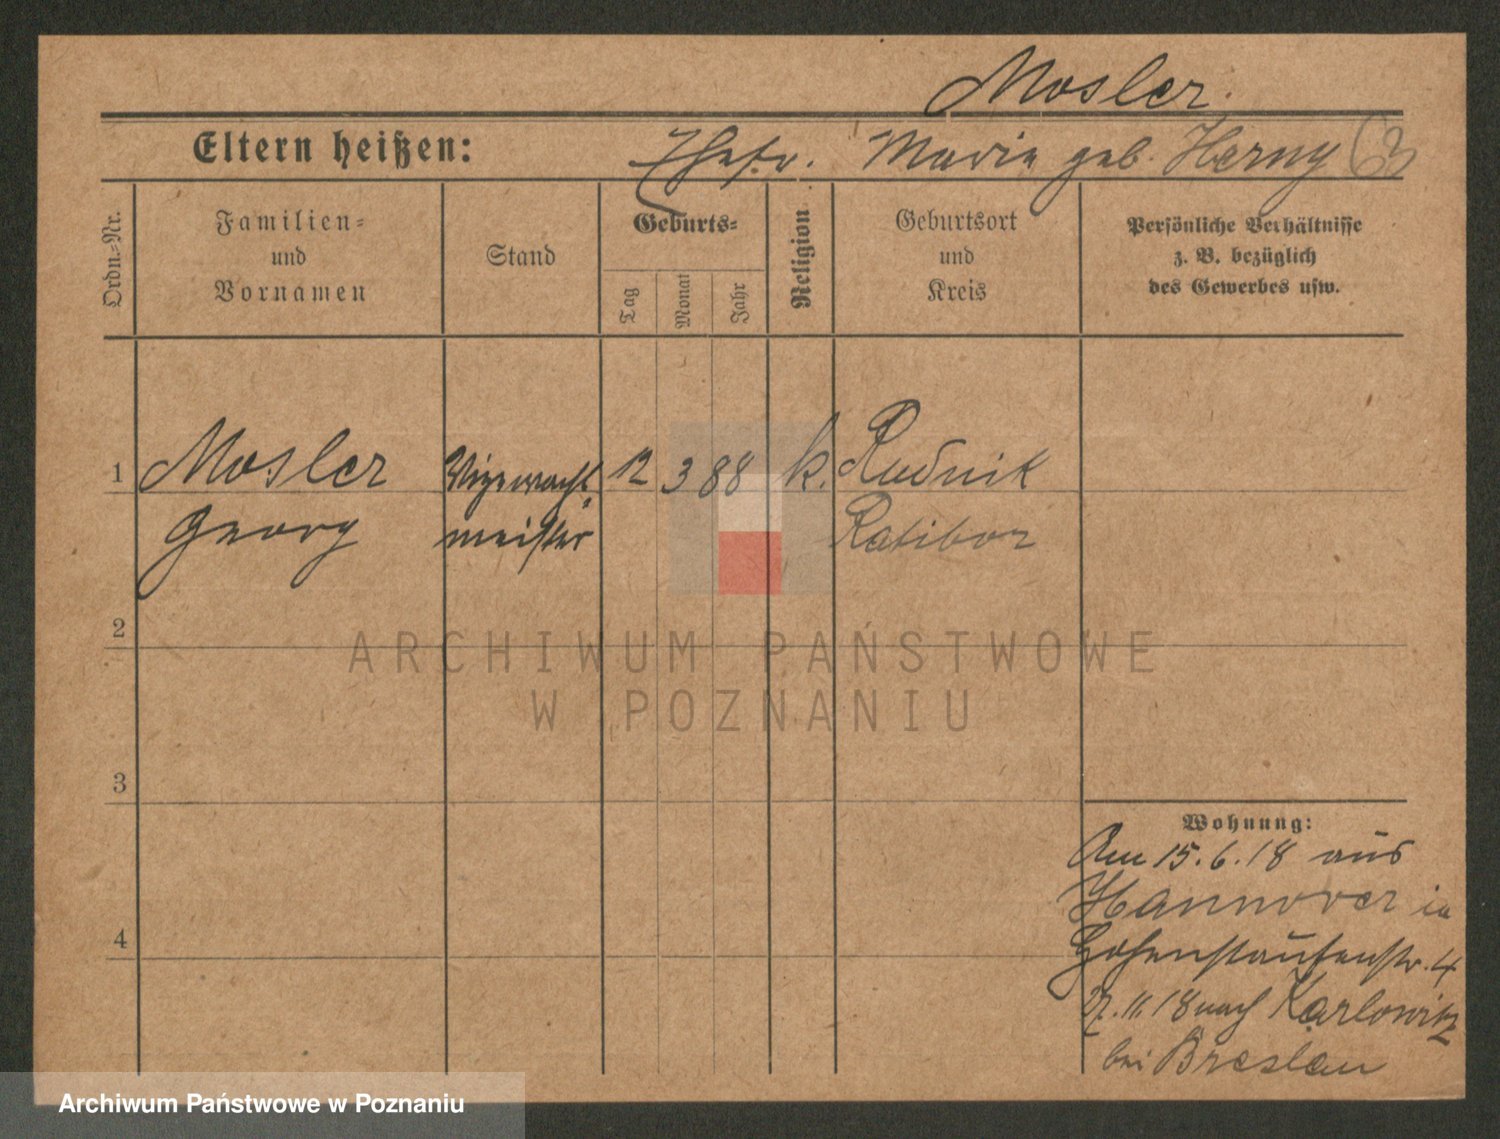 Mosler.
Eltern heißen: Ehefr. Marie geb. Herny 63
Ordn.=Nr.
Familien=
und
Vornamen
Stand
Geburts=
Tag
Monat
Jahr
Religion
Geburtsort
und
Kreis
Persönliche Verhältnisse
z. B. bezüglich
des Gewerbes usw.
1 Mosler Vizewacht= 12 3 88 k. Rudnik
Georg meister Ratibor
2
3
4
Wohnung:
Am 15.6.18 aus
Hannover in
Hohenstaufenstr. 4
27.11.18 nach Karlowitz
bei Breslau
ARCHIWUM PAŃSTWOWE
W POZNANIU
Archiwum Państwowe w Poznaniu